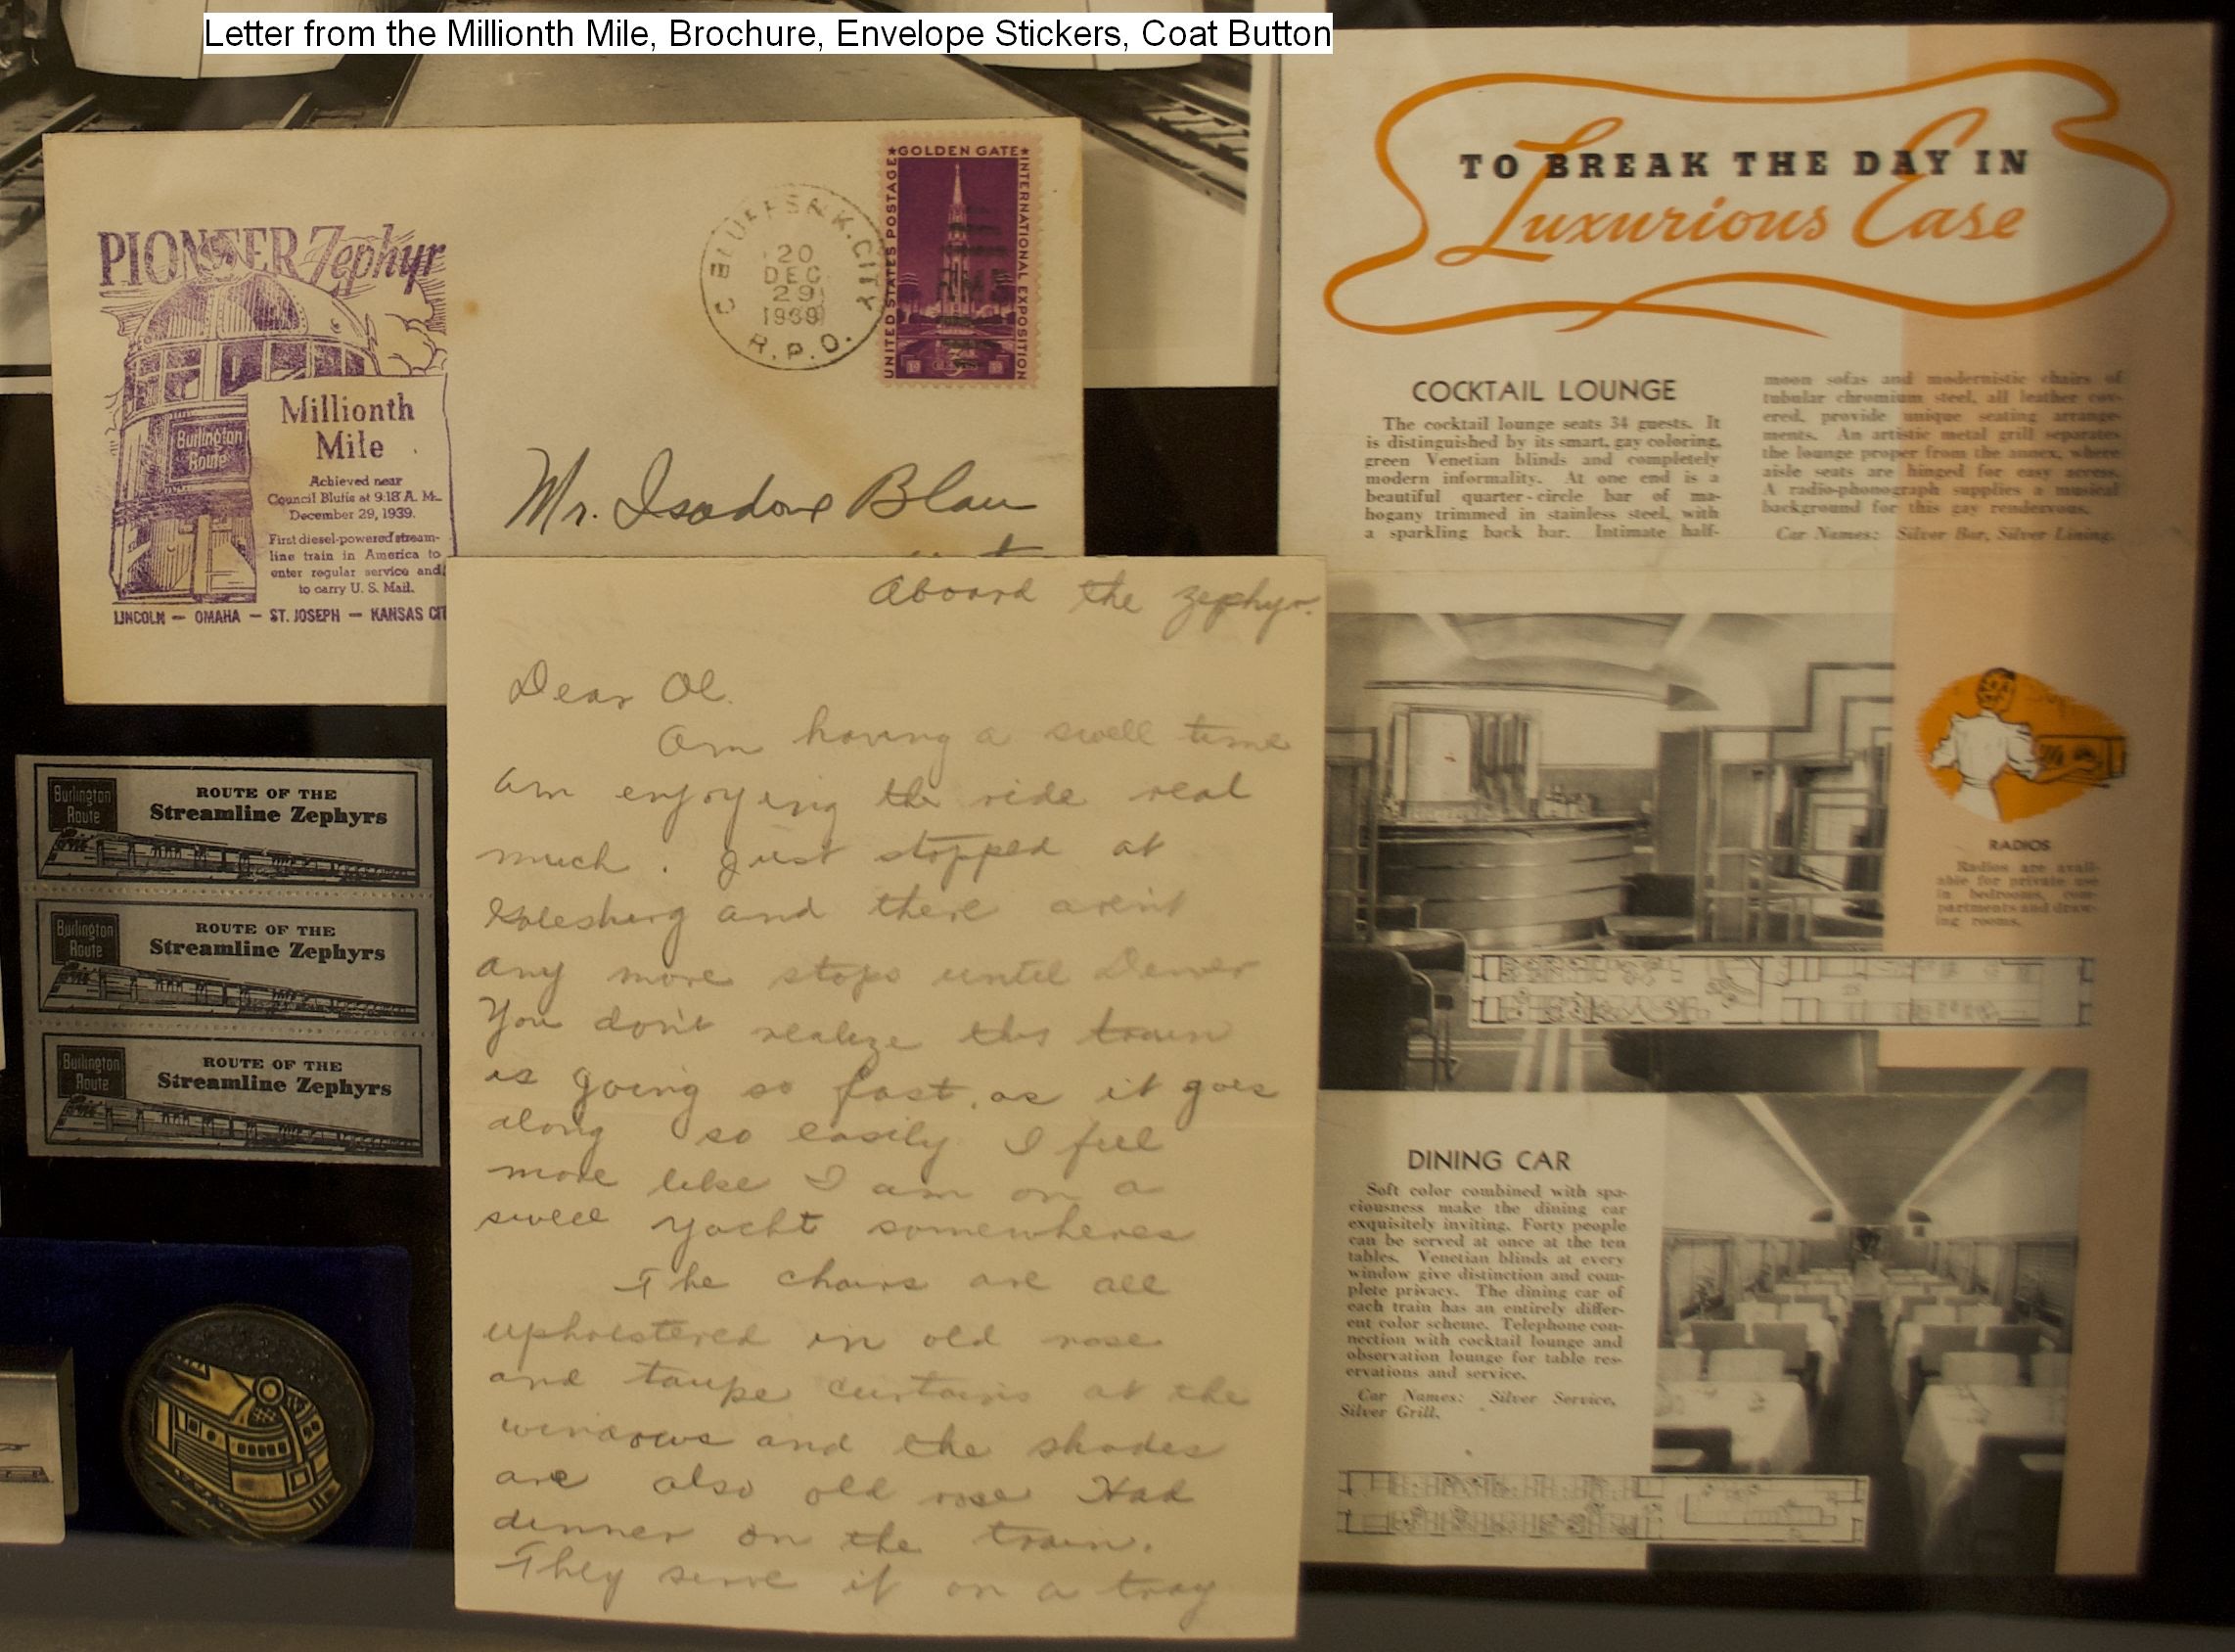 Letter from the Millionth Mile, Brochure, Envelope Stickers, Coat Button
PIONEER Zephyr
Burlington
Route
Millionth
Mile
Achieved near
Council Bluffs at 9:18 A. M.
December 29, 1939.
First diesel-powered stream-
line train in America to
enter regular service and
to carry U. S. Mail.
LINCOLN — OMAHA — ST. JOSEPH — KANSAS CIT
C BLUFFS & K. CITY
20
DEC
29
1939
R.P.O.
★GOLDEN GATE★
INTERNATIONAL EXPOSITION
UNITED STATES POSTAGE
Mr. Isadore Blau
Aboard the Zephyr.
Dear Al.
Am having a swell time
am enjoying the ride real
much. Just stopped at
Galesburg and there aren't
any more stops until Denver
You don't realize this train
is going so fast, as it goes
along so easily I feel
more like I am on a
swell yacht somewheres
The chairs are all
upholstered in old rose
and taupe curtains at the
windows and the shades
are also old rose Had
dinner on the train.
They serve it on a tray
Burlington
Route
ROUTE OF THE
Streamline Zephyrs
Burlington
Route
ROUTE OF THE
Streamline Zephyrs
Burlington
Route
ROUTE OF THE
Streamline Zephyrs
TO BREAK THE DAY IN
Luxurious Ease
COCKTAIL LOUNGE
The cocktail lounge seats 34 guests. It
is distinguished by its smart, gay coloring,
green Venetian blinds and completely
modern informality. At one end is a
beautiful quarter-circle bar of ma-
hogany trimmed in stainless steel, with
a sparkling back bar. Intimate half-
moon sofas and modernistic chairs of
tubular chromium steel, all leather cov-
ered, provide unique seating arrange-
ments. An artistic metal grill separates
the lounge proper from the annex, where
aisle seats are hinged for easy access.
A radio-phonograph supplies a musical
background for this gay rendezvous.
Car Names: Silver Bar, Silver Lining.
RADIOS
Radios are avail-
able for private use
in bedrooms, com-
partments and draw-
ing rooms.
DINING CAR
Soft color combined with spa-
ciousness make the dining car
exquisitely inviting. Forty people
can be served at once at the ten
tables. Venetian blinds at every
window give distinction and com-
plete privacy. The dining car of
each train has an entirely differ-
ent color scheme. Telephone con-
nection with cocktail lounge and
observation lounge for table res-
ervations and service.
Car Names: Silver Service,
Silver Grill.